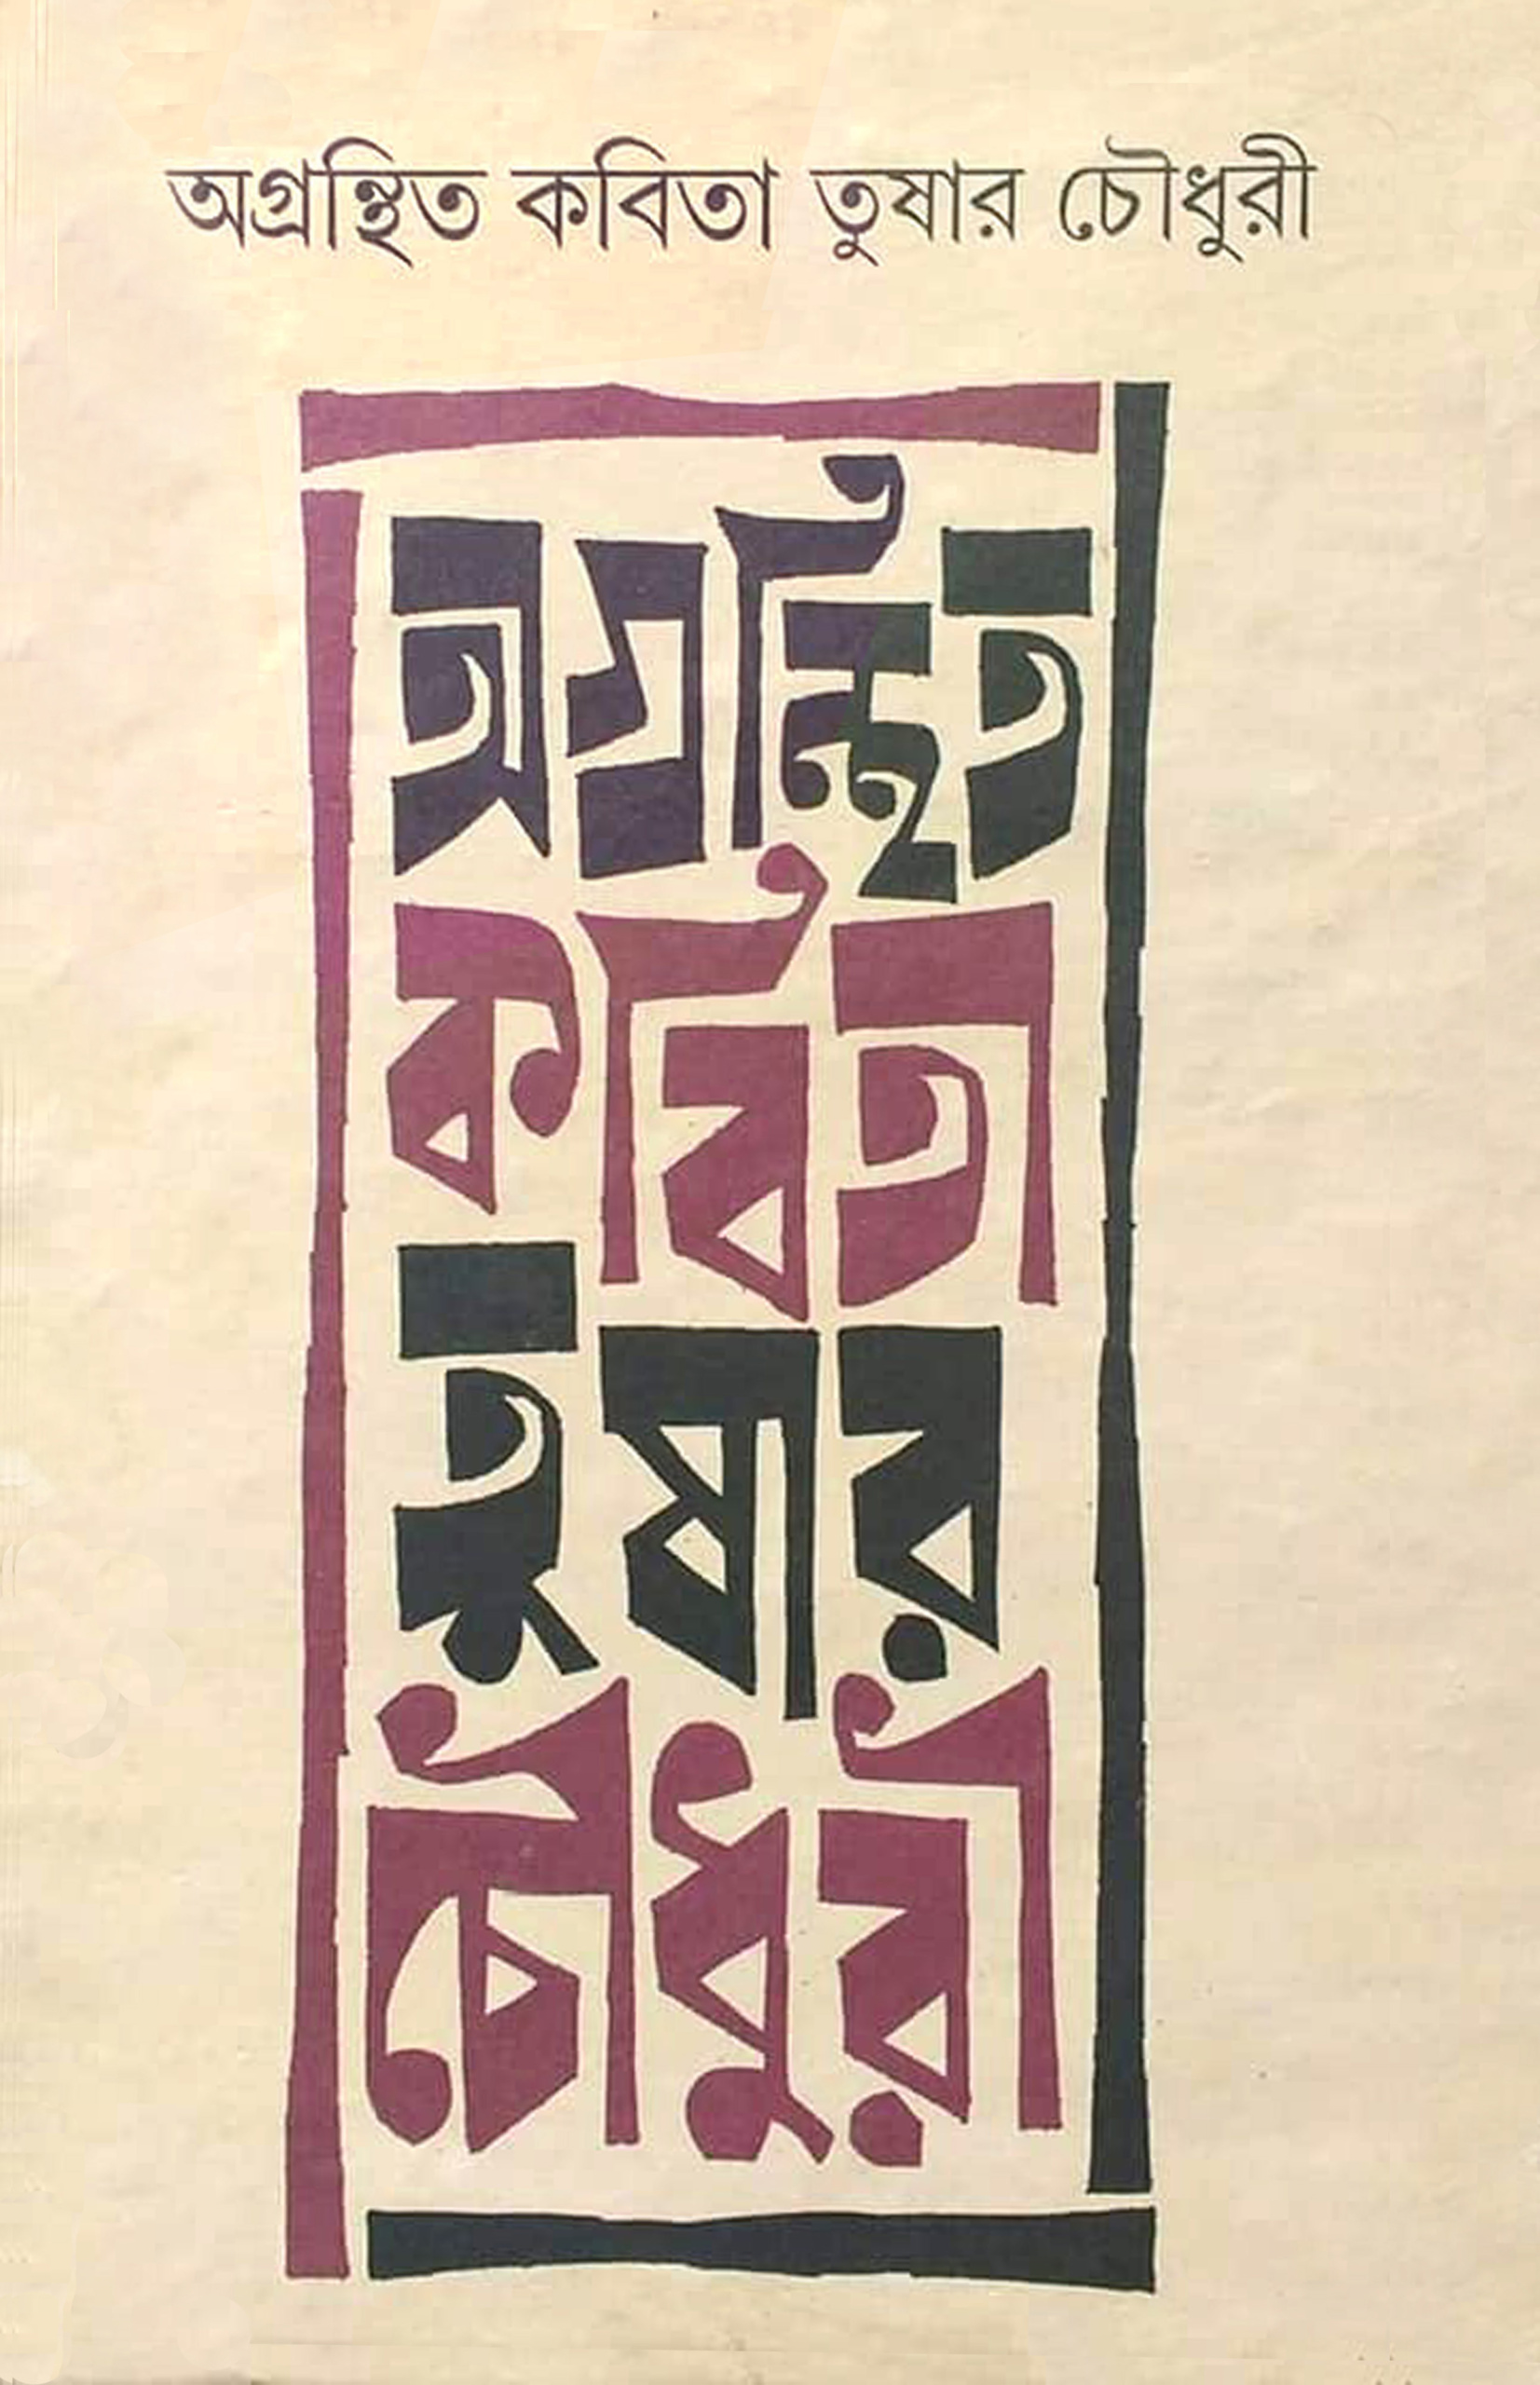 অগ্রন্থিত কবিতা তুষার চৌধুরী
অগ্রন্থিত
কবিতা
তুষার
চৌধুরী